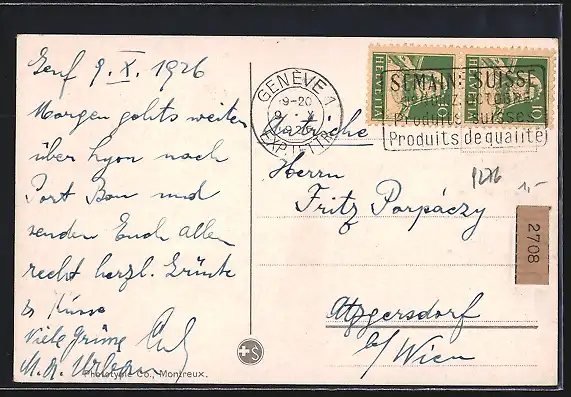 Genf 9. X. 1926
Morgen gehts weiter
über Lyon nach
Port Bou und
senden Euch allen
recht herzl. Grüsse
& Küsse
Viele Grüsse
M. A. Urban
Phototypie Co., Montreux.
GENÈVE 1
9-20
9. X
1926
EXP. LETTR.
HELVETIA 10
HELVETIA 10
SEMAINE SUISSE
Produits suisses
Produits de qualité
Autriche
Herrn
Fritz Porpáczy
Atzgersdorf
b/ Wien
1276
1,-
2708
S